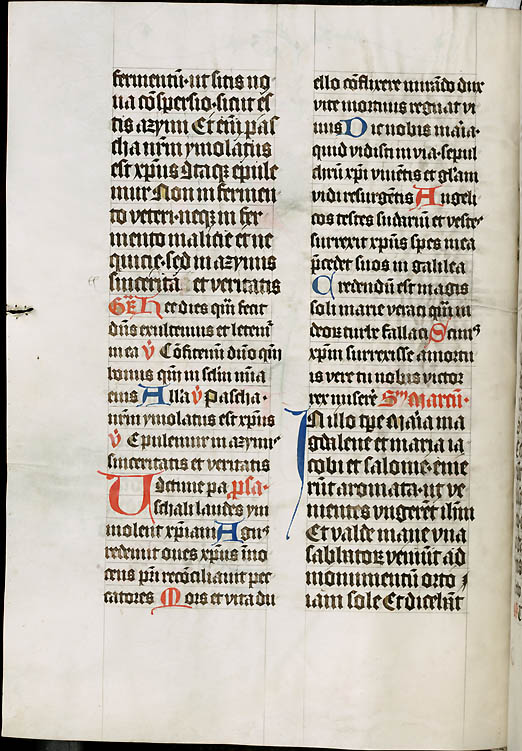 fermentū· ut sitis no
ua cōspersio· sicut es
tis azymi Et em̄ pas
cha nr̄m ymolatus
est xp̄us Itaq epule
mur Non in fermen
to veteri· neqz in fer
mento malicie et ne
quicie· sed in azymis
sincerita et veritatis
Gr̄ Hec dies quā fecit
dn̄s exultemus et letem̄
in ea v̄ Cōfitemī dn̄o qm̄
bonus qm̄ in sc̄lm mīa
eius Alla v̄ Pascha·
nr̄m ymolatus est xp̄us
v̄ Epulemur in azymis
sinceritatis et veritatis
Uictime pa psa·
schali laudes ym
molent xp̄iani Agnꝰ
redemit oues xp̄us īno
cens pr̄i recōciliauit pec
catores Mors et vita du
ello cōflixere mirādo dux
vite mortuus regnat vi
uus Dic nobis maīa·
quid vidisti in via· sepul
chrū xp̄i viuētis et gl̄am
vidi resurgētis Angeli
cos testes sudariū et vestes
surrexit xp̄us spes mea
p̄cedet suos in galilea
Credendū est magis
soli marie veraci quā iu
deoꝝ turbe fallaci Scimꝰ
xp̄m surrexisse a mortu
is vere tu nobis victor
rex miserē Sm̄ Marcū·
In illo tp̄e Maīa ma
gdalene et maria ia
cobi et salome· eme
rūt aromata· ut ve
nientes vngerēt ih̄m
Et valde mane vna
sabbatoꝝ veniūt ad
monumentū orto
iam sole Et dicebāt